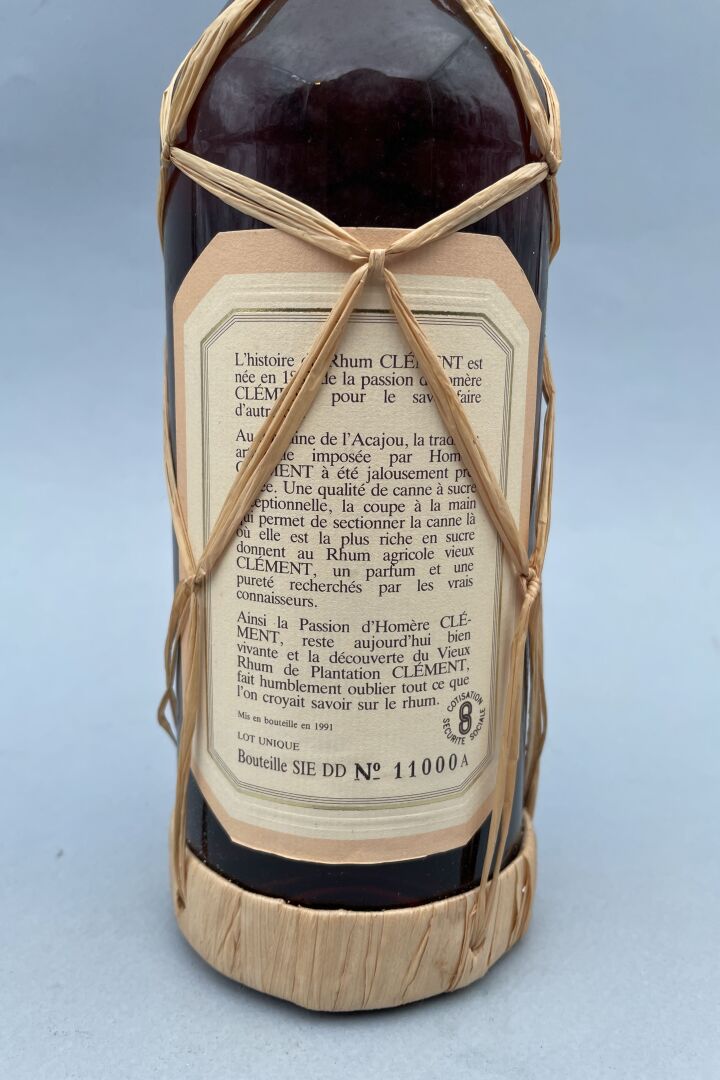 L'histoire Rhum CLÉMENT est
née en de la passion d'Homère
pour le faire
Au de l'Acajou, la
imposée par
CLÉMENT à été jalousement
Une qualité de canne à sucre
exceptionnelle, la coupe à la main
qui permet de sectionner la canne là
où elle est la plus riche en sucre
donnent au Rhum agricole vieux
CLÉMENT, un parfum et une
pureté recherchés par les vrais
connaisseurs.
Ainsi la Passion d'Homère CLÉ-
MENT, reste aujourd'hui bien
vivante et la découverte du Vieux
Rhum de Plantation CLÉMENT,
fait humblement oublier tout ce que
l'on croyait savoir sur le rhum.
COTISATION
SECURITE SOCIALE
Mis en bouteille en 1991
LOT UNIQUE
Bouteille SIE DD Nº 11000A